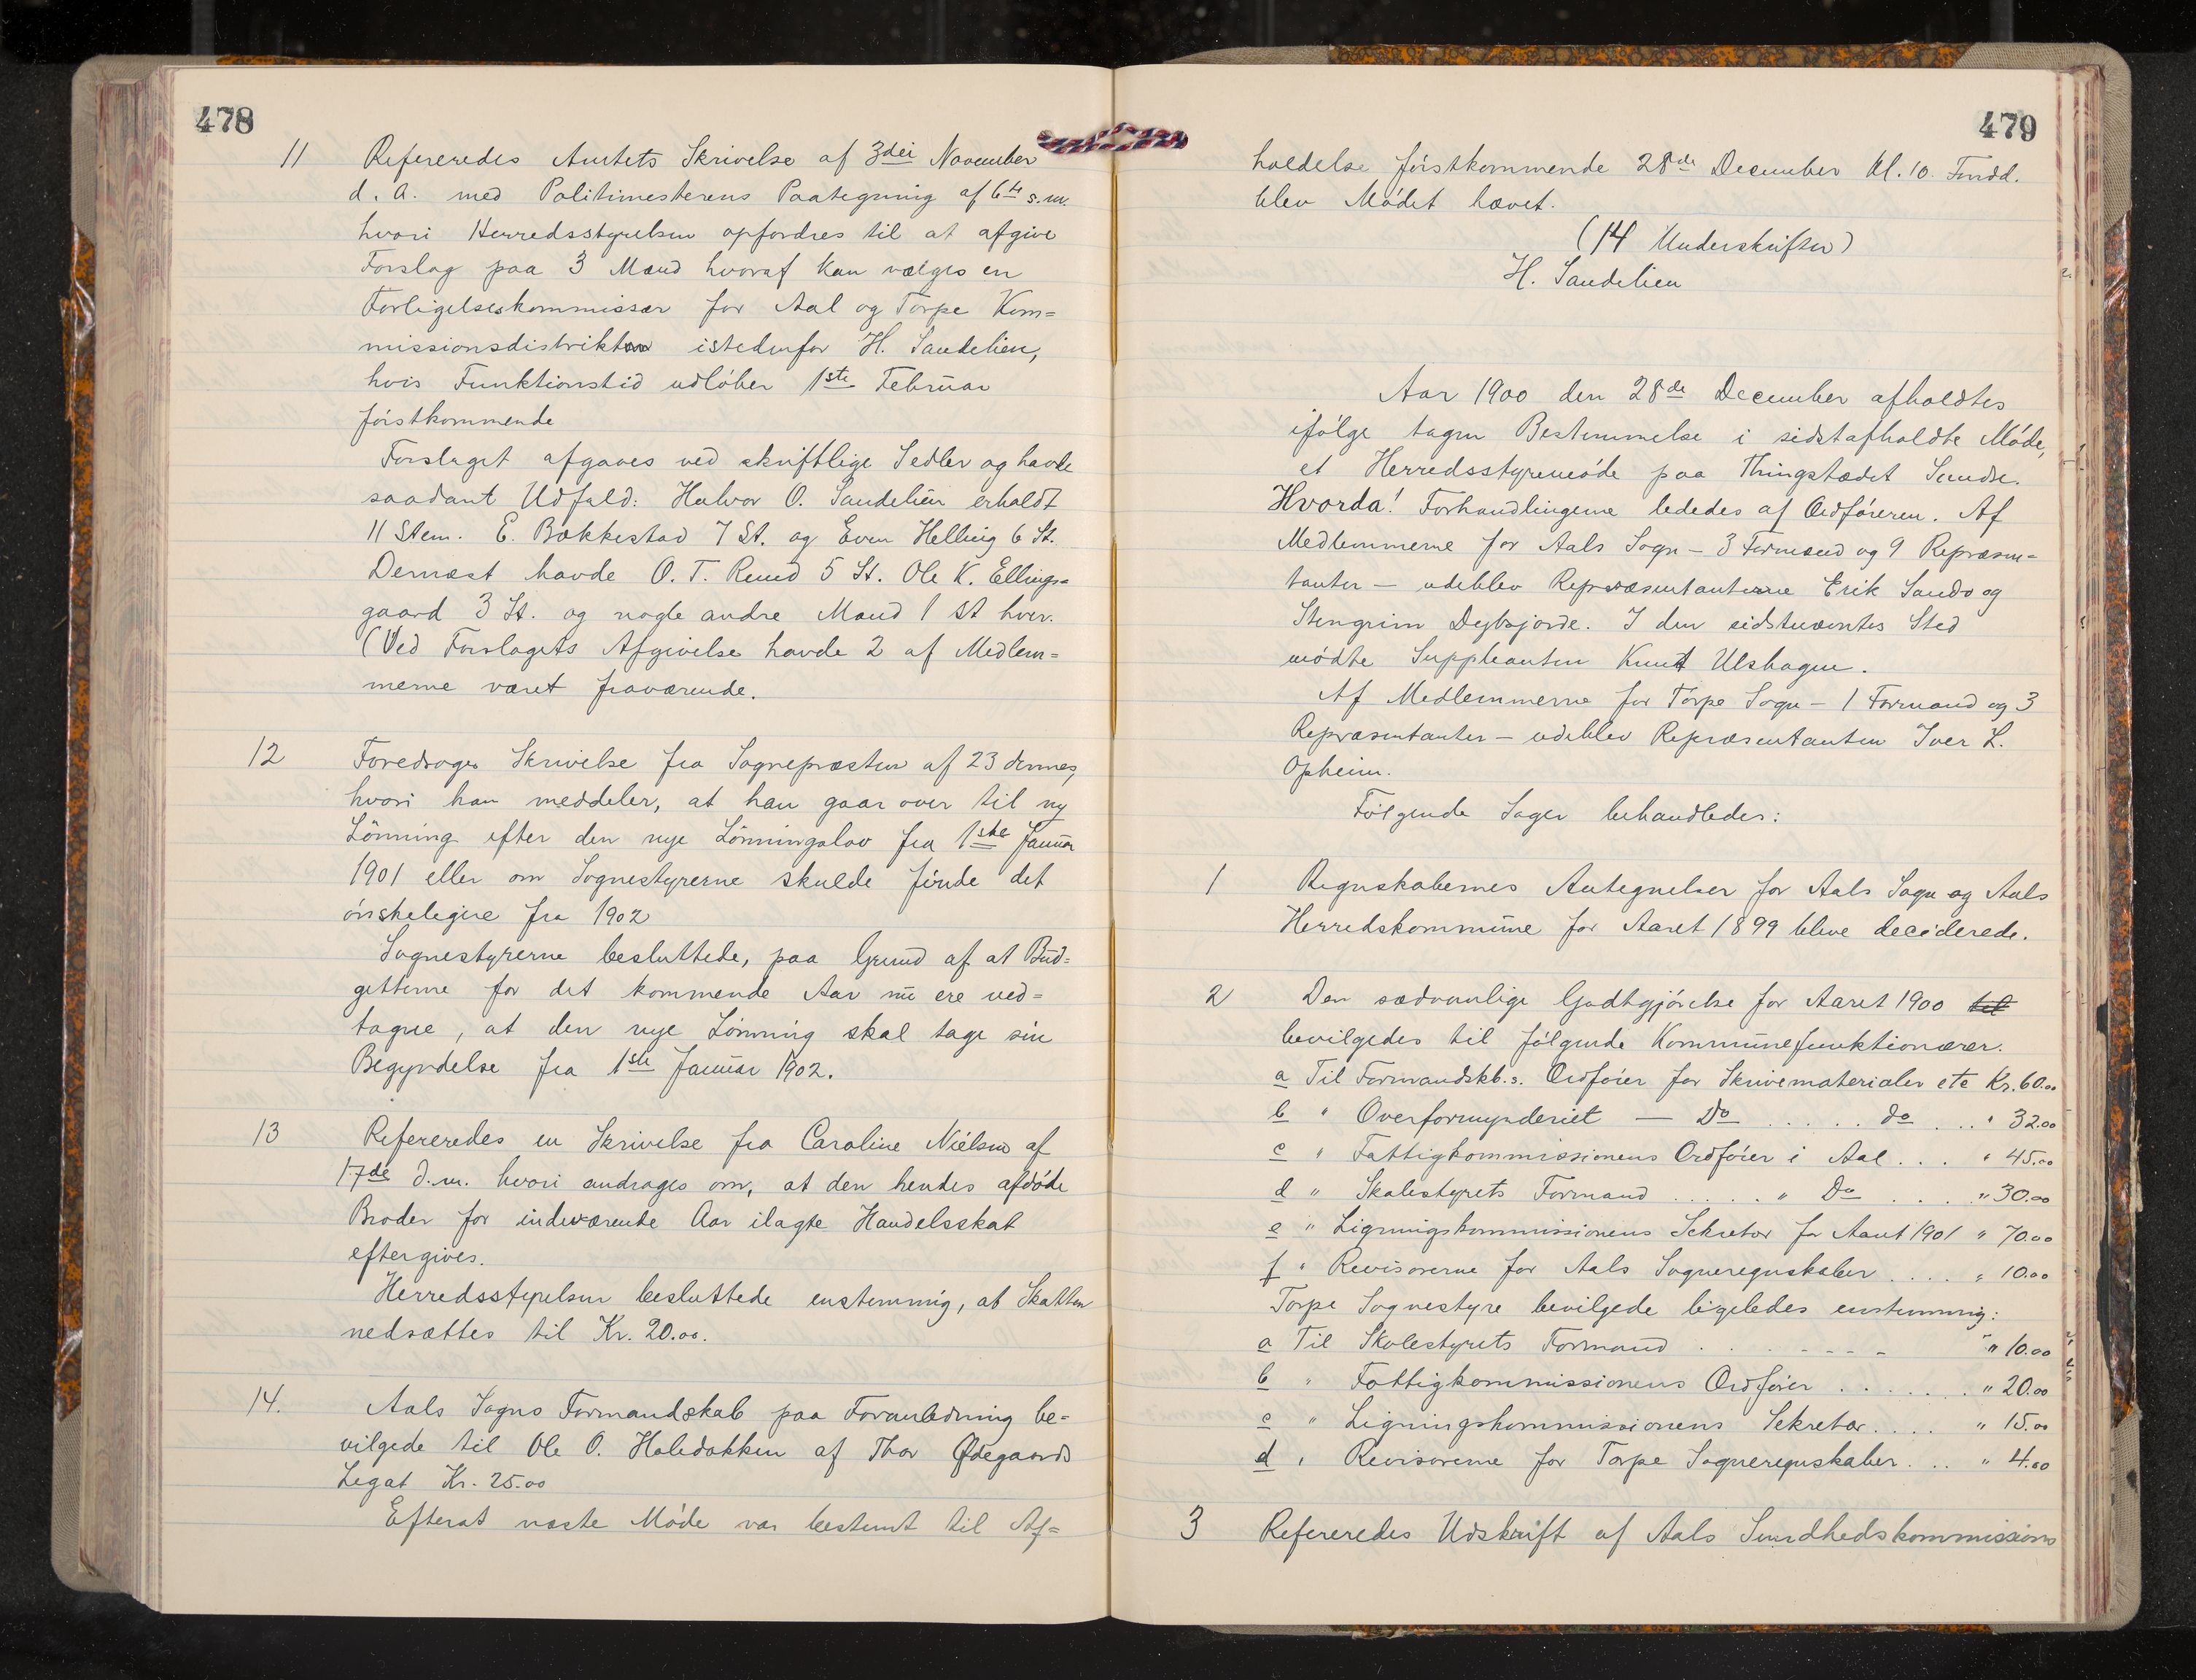 478
11 Refereredes Amtets Skrivelse af 3dei November
d. A. med Politimesterens Paategning af 6te s.m.
hvori Herredsstyrelsen opfordres til at afgive
Forslag paa 3 Mænd hvoraf kan vælges en
Forligelseskommissær for Aal og Torpe Kom=
missionsdistrikter istedenfor H. Sandelien,
hvis Funktionstid udløber 1ste Februar
førstkommende
Forslaget afgaves ved skriftlige Sedler og havde
saadant Udfald: Halvor O. Sandelien erholdt
11 Stem. E. Bakkestad 7 St. og Even Helling 6 St.
Dernæst havde O. T. Rened 5 St. Ole K. Ellings=
gaard 3 St. og nogle andre Mænd 1 St hver.
(Ved Forslagets Afgivelse havde 2 af Medlem=
merne været fraværende.
12 Foredroges Skrivelse fra Sognepræsten af 23 dennes,
hvori han meddeler, at han gaar over til ny
Lønning efter den nye Lønningslov fra 1ste Januar
1901 eller om Sognestyrerne skulde finde det
ønskeligere fra 1902
Sognestyrerne besluttede, paa Grund af at Bud=
getterne for det kommende Aar nu ere ved=
tagne, at den nye Lønning skal tage sin
Begyndelse fra 1ste Januar 1902.
13 Refereredes en Skrivelse fra Caroline Nielsen af
17de d.m. hvori andrages om, at den hendes afdøde
Broder for indeværende Aar ilagte Handelsskat
eftergives.
Herredsstyrelsen besluttede enstemmig, at Skatten
nedsættes til Kr. 20.00.
14. Aals Sogns Formandskab paa Foranledning be=
vilgede til Ole O. Holedokken af Thor Ødegaards
Legat Kr. 25.00
Efterat næste Møde var bestemt til Af=
479
holdelse førstkommende 28de December Kl. 10 Formd.
blev Mødet hævet.
(14 Underskrifter)
H. Sandelien
Aar 1900 den 28de December afholdtes
ifølge tagen Bestemmelse i sidstafholdte Møde,
et Herredsstyremøde paa Thingstædet Sundre.
Hvorda! Forhandlingerne lededes af Ordføreren. Af
Medlemmerne for Aals Sogn – 3 Formænd og 9 Repræsen=
tanter – udeblev Repræsentanterne Erik Sando og
Stengrim Dybsjorde. I den sidstnævntes Sted
mødte Suppleanten Knut Ulshagen.
Af Medlemmerne for Torpe Sogn – 1 Formand og 3
Repræsentanter – udeblev Repræsentanten Iver L.
Opheim.
Følgende Sager behandledes:
1 Regnskabernes Antegnelser for Aals Sogn og Aals
Herredskommune for Aaret 1899 bleve deciderede.
2 Den sædvanlige Godtgjørelse for Aaret 1900 til
bevilgedes til følgende Kommunefunktionærer.
a Til Formandskb.s. Ordfører for Skrivematerialer etc Kr. 60.00
b " Overformynderiet — Do . . . . . . do . . . " 32.00
c " Fattigkommissionens Ordfører i Aal . . . " 45.00
d " Skolestyrets Formand . . . . . " Do . . . . " 30.00
e " Ligningskommissionens Sekretær for Aaret 1901 " 70.00
f " Revisorerne for Aals Sogneregnskaber . . . . " 10.00
Torpe Sognestyre bevilgede ligeledes enstemmig:
a Til Skolestyrets Formand . . . . - - - - " 10.00
b " Fattigkommissionens Ordfører . . . . . . . " 20.00
c " Ligningskommissionens Sekretær . . . . " 15.00
d " Revisorerne for Torpe Sogneregnskaber . . . " 4.00
3 Refereredes Udskrift af Aals Sundhedskommissions